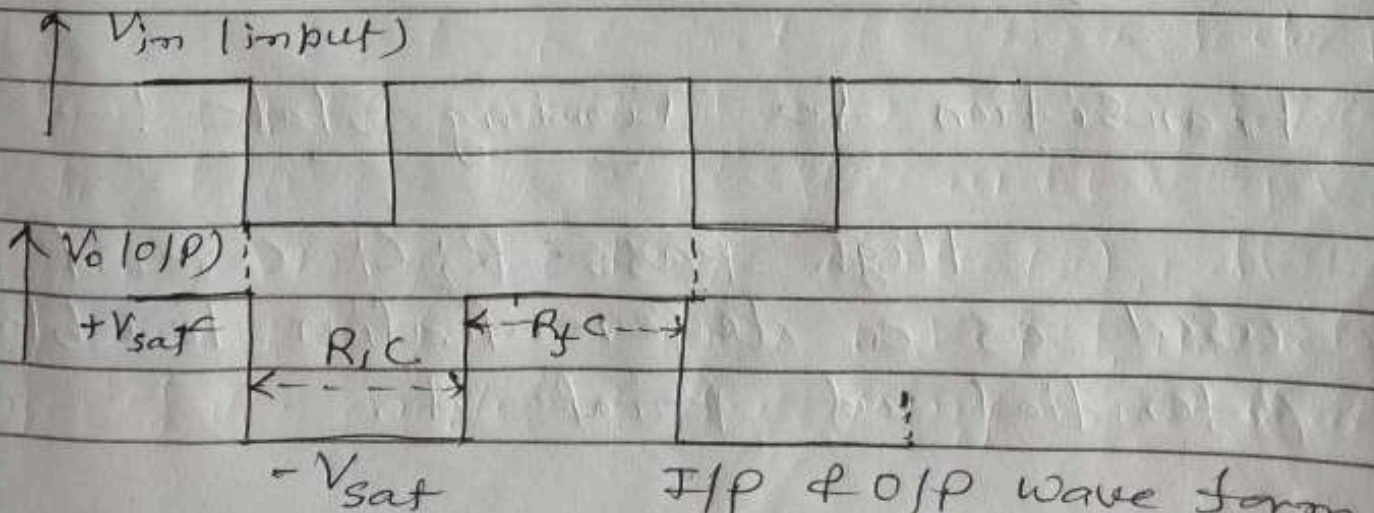 Vin (input)
Vo (O/P)
+Vsat
R1C
RfC
-Vsat
I/P & O/P wave form